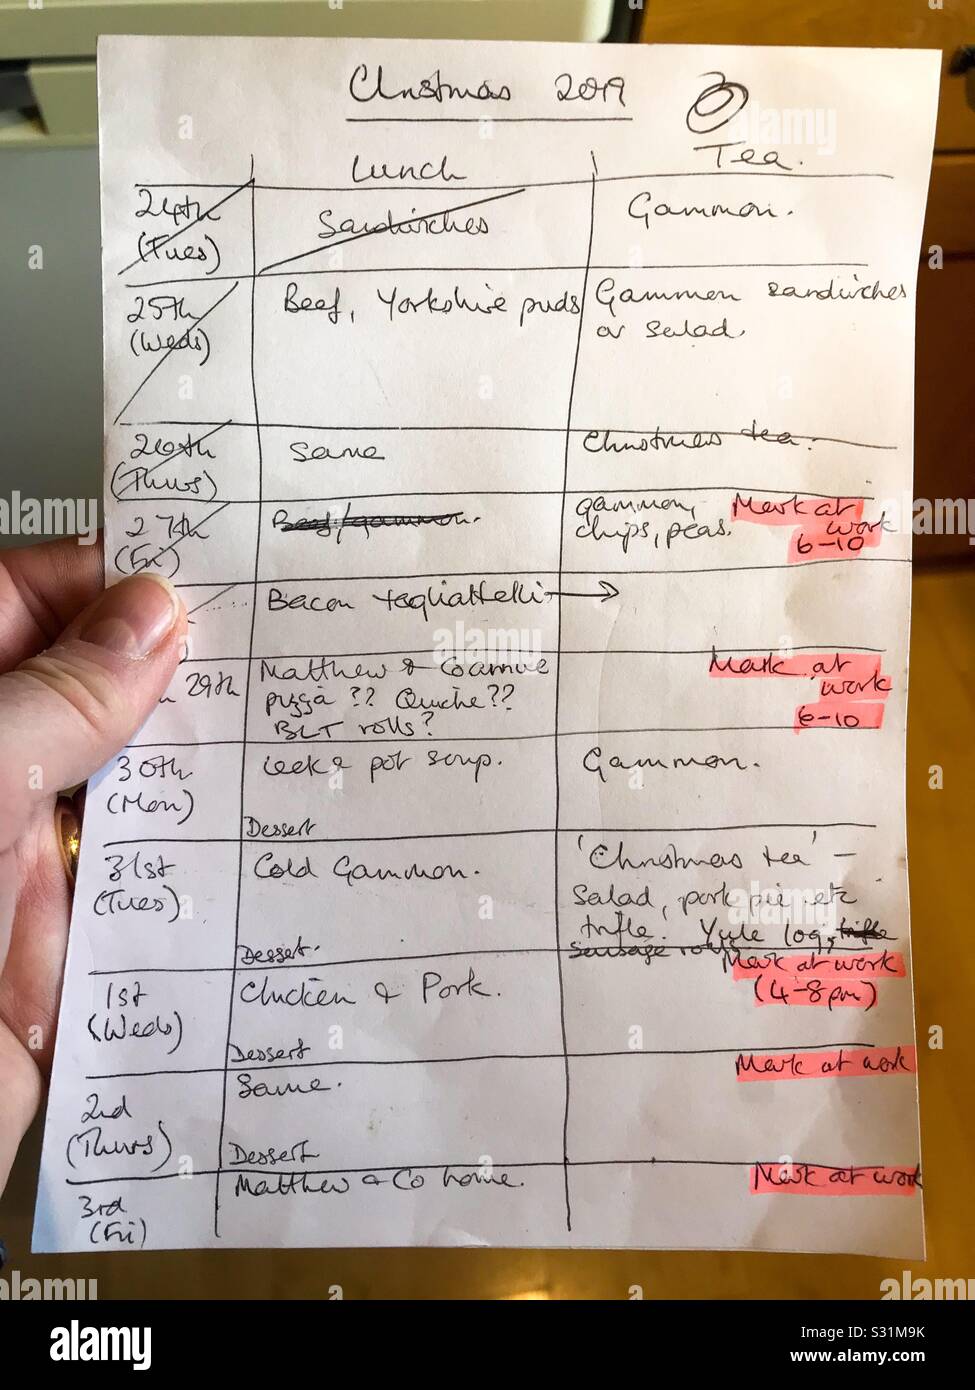 Christmas 2019
Lunch
Tea.
24th
(Tues)
Sandwiches
Gammon.
25th
(Weds)
Beef, Yorkshire puds
Gammon sandwiches
or salad.
26th
(Thurs)
Same
Christmas tea.
27th
(Fri)
Beef/gammon.
gammon,
chips, peas.
Mark at
work
6-10
Bacon tagliattelli
29th
Matthew &
pizza ?? Quiche??
BLT rolls?
Mark at
work
6-10
30th
(Mon)
Leek & pot soup.
Dessert
Gammon.
31st
(Tues)
Cold Gammon.
Dessert.
'Christmas tea' -
Salad, pork pie etc
trifle. Yule log, trifle
Sausage rolls
1st
(Weds)
Chicken & Pork.
Dessert
Mark at work
(4-8pm)
2nd
(Thurs)
Same.
Dessert
Mark at work
3rd
(Fri)
Matthew & Co home.
Mark at work
alamy
Image ID: S31M9K
www.alamy.com